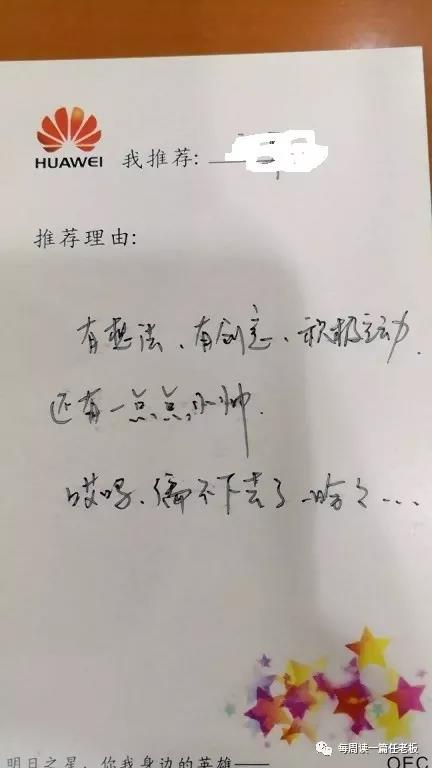 HUAWEI 我推荐:
推荐理由:
有想法、有创意、积极主动.
还有一点点小帅.
哎呀、编不下去了、哈々....
明日之星，你我身边的英雄——
OEC
每周读一篇任老板